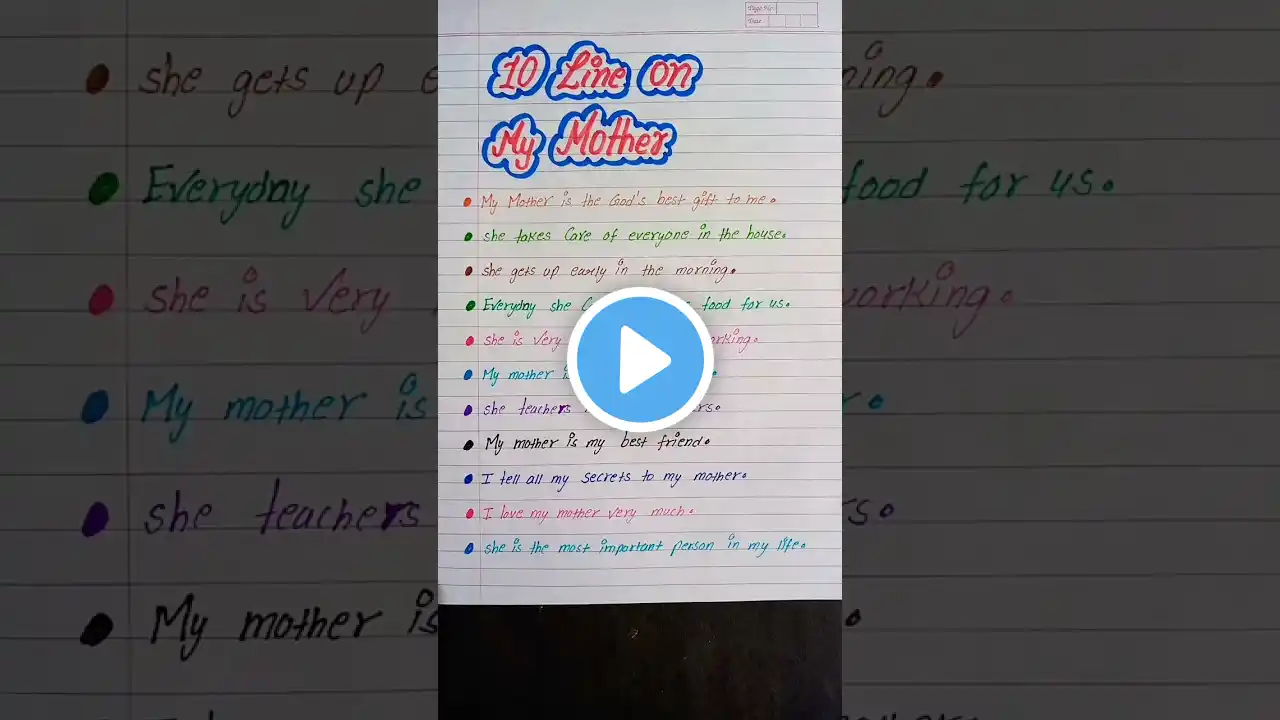 Page No.
Date
10 Line on
My Mother
My Mother is the God's best gift to me.
she takes Care of everyone in the house.
she gets up early in the morning.
Everyday she food for us.
she is very
My mother
she teachers
My mother is my best friend.
I tell all my secrets to my mother.
I love my mother very much.
she is the most important person in my life.
she gets up
Everyday she food for us.
she is very
My mother is
she teachers
My mother is